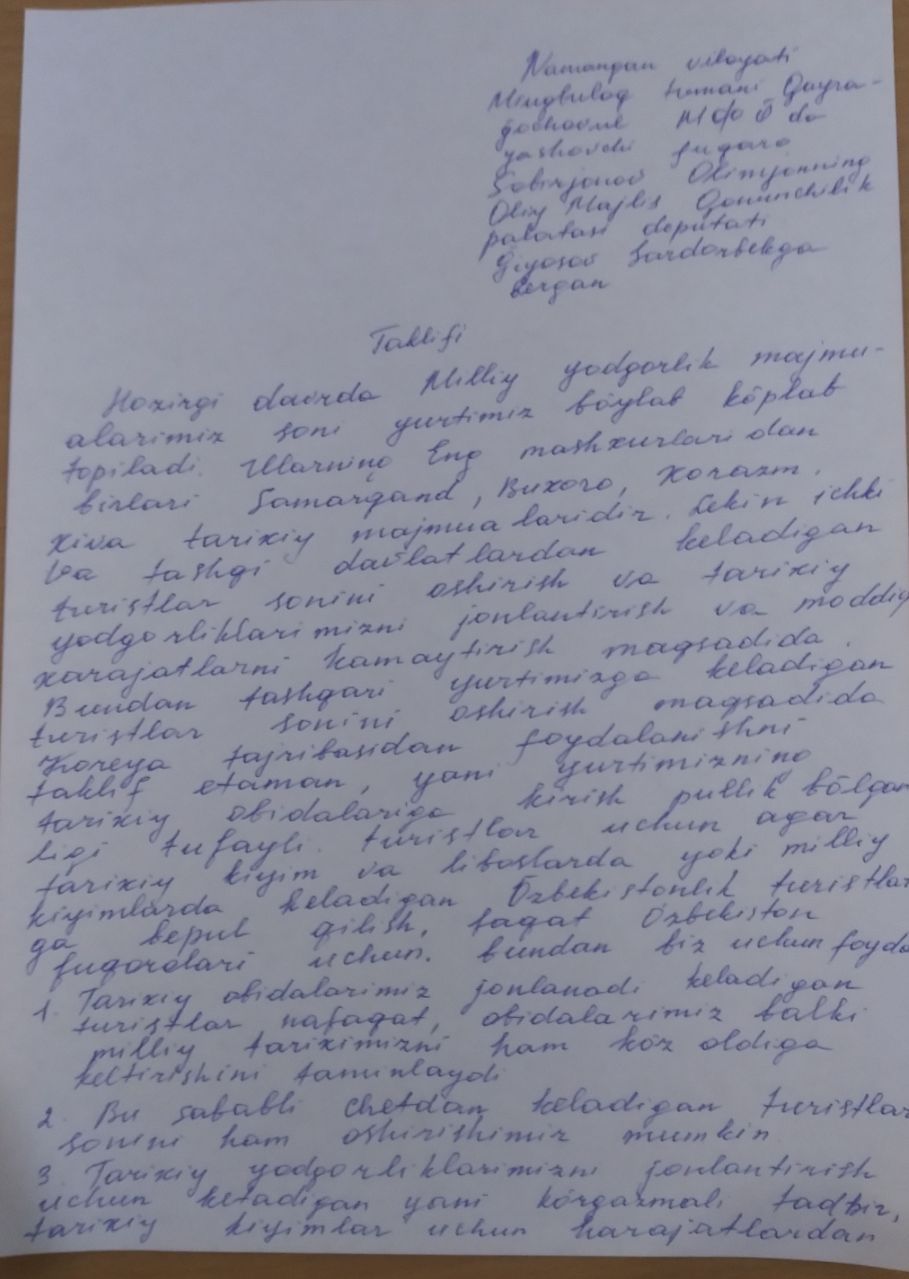 Namangan viloyati
Mingbuloq tumani Qayra-
g'ochovul MFO Õ da
yashovchi fuqaro
Sobirjonov Olimjonning
Oliy Majlis Qonunchilik
palatasi deputati
Ğiyosov Sardorbekga
bergan
Taklifi
Hozirgi davrda Milliy yodgorlik majmu-
alarimiz soni yurtimiz bõylab kõplab
topiladi. Ularning Eng mashxurlaridan
birlari Samarqand, Buxoro, Xorazm,
Xiva tarixiy majmualaridir. Lekin ichki
va tashqi davlatlardan keladigan
turistlar sonini oshirish va tarixiy
yodgorliklarimizni jonlantirish va moddiy
xarajatlarni kamaytirish maqsadida.
Bundan tashqari yurtimizga keladigan
turistlar sonini oshirish maqsadida
Koreya tajribasidan foydalanishni
taklif etaman, yani yurtimizning
tarixiy obidalariga kirish pullik bõlgan
ligi tufayli. turistlar uchun agar
tarixiy kiyim va liboslarda yoki milliy
kiyimlarda keladigan Õzbekistonlik turistlar
ga bepul qilish, faqat Õzbekiston
fuqorolari uchun. bundan biz uchun foyda
1. Tarixiy obidalarimiz jonlanadi keladigan
turistlar nafaqat, obidalarimiz balki
milliy tariximizni ham kõz oldiga
keltirishini taminlaydi
2. Bu sababli chetdan keladigan turistlar
sonini ham oshirishimiz mumkin
3. Tarixiy yodgorliklarimizni jonlantirish
uchun ketadigan yani kõrgazmali tadbir,
tarixiy kiyimlar uchun harajatlardan